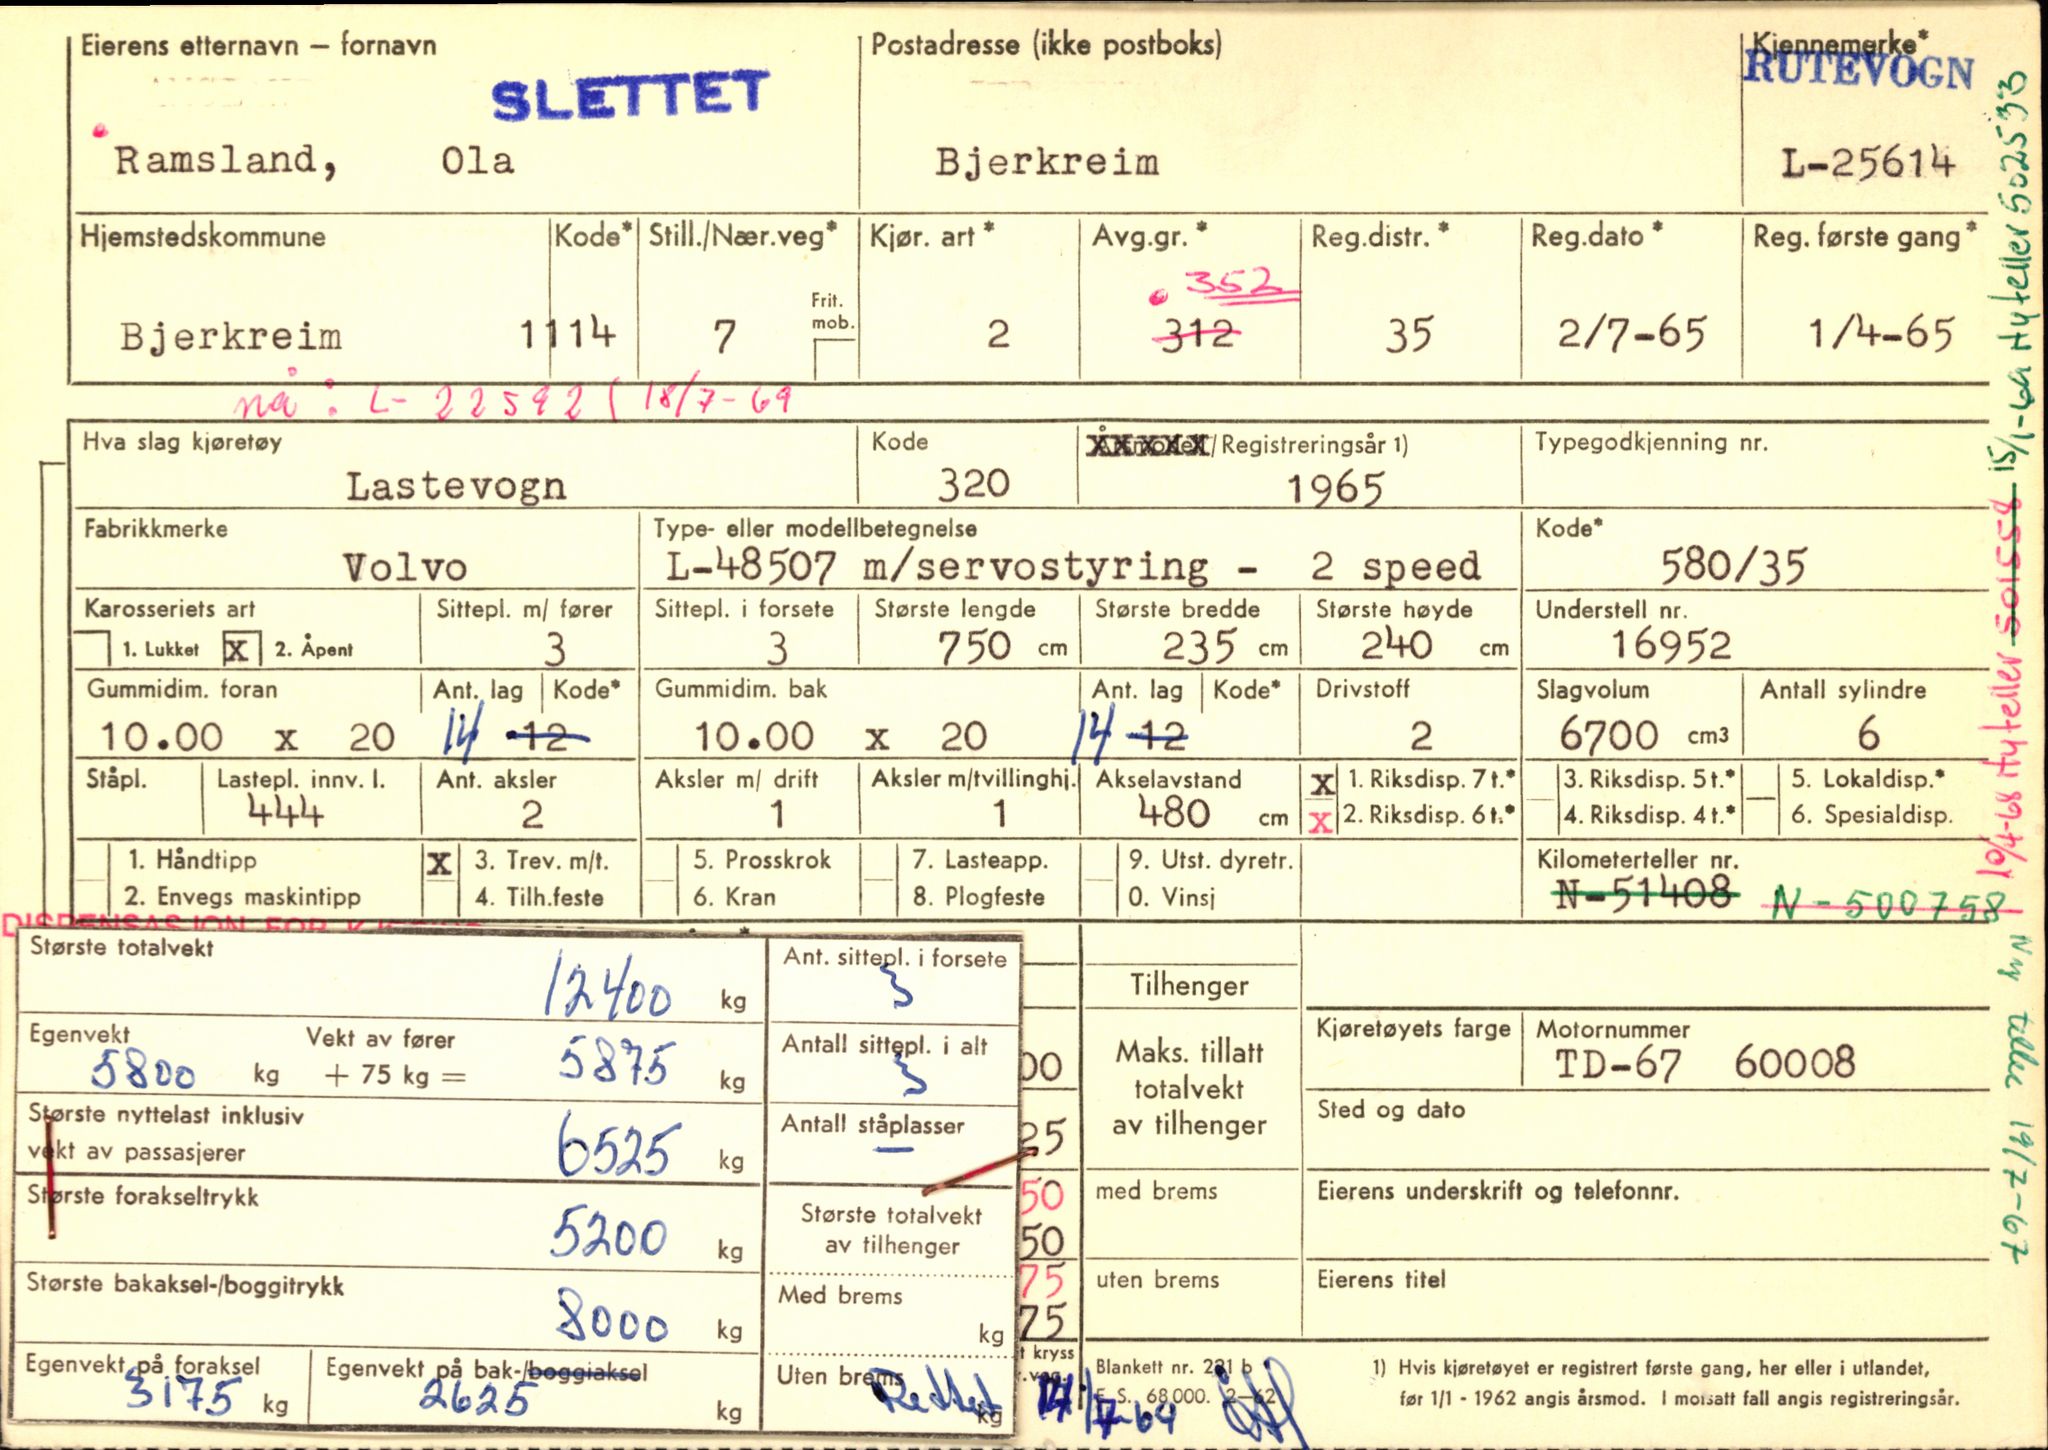 Eierens etternavn – fornavn
SLETTET
Ramsland, Ola
Postadresse (ikke postboks)
Bjerkreim
Kjennemerke*
RUTEVOGN
L-25614
Hjemstedskommune
Bjerkreim
Kode*
1114
Still./Nær.veg*
7
Frit. mob.
Kjør. art*
2
Avg.gr.*
352
312
Reg.distr.*
35
Reg.dato*
2/7-65
Reg. første gang*
1/4-65
nå: L-22592 (18/7-69
Hva slag kjøretøy
Lastevogn
Kode
320
Årsmodell/Registreringsår 1)
1965
Typegodkjenning nr.
Fabrikkmerke
Volvo
Type- eller modellbetegnelse
L-48507 m/servostyring - 2 speed
Kode*
580/35
Karosseriets art
1. Lukket X 2. Åpent
Sittepl. m/ fører
3
Sittepl. i forsete
3
Største lengde
750 cm
Største bredde
235 cm
Største høyde
240 cm
Understell nr.
16952
Gummidim. foran
10.00 x 20
Ant. lag Kode*
14 12
Gummidim. bak
10.00 x 20
Ant. lag Kode*
14 12
Drivstoff
2
Slagvolum
6700 cm3
Antall sylindre
6
Ståpl.
Lastepl. innv. l.
444
Ant. aksler
2
Aksler m/ drift
1
Aksler m/tvillinghj.
1
Akselavstand
480 cm
X 1. Riksdisp. 7 t.*
X 2. Riksdisp. 6 t.*
3. Riksdisp. 5 t.*
4. Riksdisp. 4 t.*
5. Lokaldisp.*
6. Spesialdisp.
1. Håndtipp
2. Envegs maskintipp
X 3. Trev. m/t.
4. Tilh.feste
5. Prosskrok
6. Kran
7. Lasteapp.
8. Plogfeste
9. Utst. dyretr.
0. Vinsj
Kilometerteller nr.
N-51408 N-500758
DISPENSASJON FOR
Største totalvekt
12400 kg
Ant. sittepl. i forsete
3
Egenvekt
5800 kg
Vekt av fører
+ 75 kg = 5875 kg
Antall sittepl. i alt
3
Største nyttelast inklusiv
vekt av passasjerer
6525 kg
Antall ståplasser
—
Største forakseltrykk
5200 kg
Største totalvekt
av tilhenger
Største bakaksel-/boggitrykk
8000 kg
Med brems
kg
Egenvekt på foraksel
3175 kg
Egenvekt på bak-/boggiaksel
2625 kg
Uten brems
kg
Rettet
7-69
00
25
50
50
75
75
t kryss
Tilhenger
Maks. tillatt
totalvekt
av tilhenger
med brems
uten brems
Kjøretøyets farge
Motornummer
TD-67 60008
Sted og dato
Eierens underskrift og telefonnr.
Eierens titel
Blankett nr. 221 b
E. S. 68000. 2-62
1) Hvis kjøretøyet er registrert første gang, her eller i utlandet,
før 1/1 - 1962 angis årsmod. I motsatt fall angis registreringsår.
10/4-68 Ny teller 501558 15/1-69 Ny teller 502533
Ny teller 19/7-67